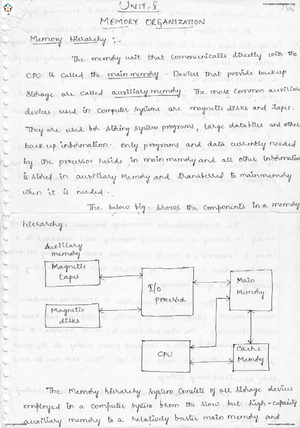 UNIT-8
MEMORY ORGANIZATION
Memory Hierarchy :-
The memory unit that communicates directly with the
CPU is called the main memory. Devices that provide backup
storage are called auxiliary memory. The most common auxiliary
devices used in computer systems are magnetic disks and tapes.
They are used for storing system programs, large data files and other
back up information. Only programs and data currently needed
by the processor reside in main memory and all other information
is stored in auxiliary memory and transferred to main memory
when it is needed.
The below fig. shows the components in a memory
hierarchy.
Auxiliary
memory
Magnetic
tapes
I/O
processor
Main
Memory
Magnetic
disks
CPU
Cache
Memory
The Memory hierarchy system consists of all storage devices
employed in a computer system from the slow but high-capacity
auxiliary memory to a relatively faster main memory and